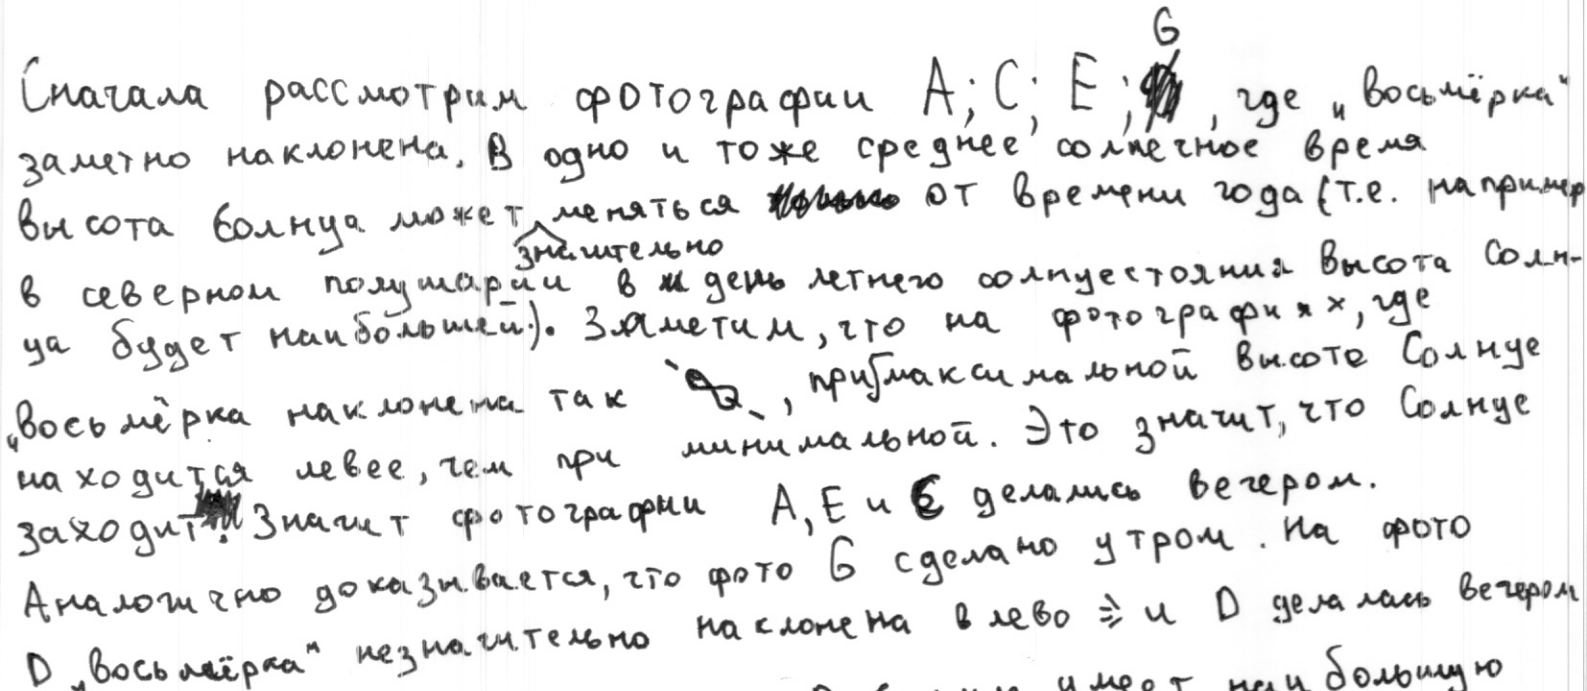 Сначала рассмотрим фотографии A; C; E; G, где „восьмёрка“
заметно наклонена. В одно и тоже среднее солнечное время
высота Солнца может значительно меняться от времени года (т.е. например
в северном полушарии в день летнего солнцестояния высота Солн-
ца будет наибольшей). Заметим, что на фотографиях, где
„восьмёрка наклонена так , при максимальной высоте Солнце
находится левее, чем при минимальной. Это значит, что Солнце
заходит. Значит фотографии A, E и C делались вечером.
Аналогично доказывается, что фото G сделано утром. На фото
D „восьмёрка“ незначительно наклонена влево => и D делалась вечером
имеет наибольшую